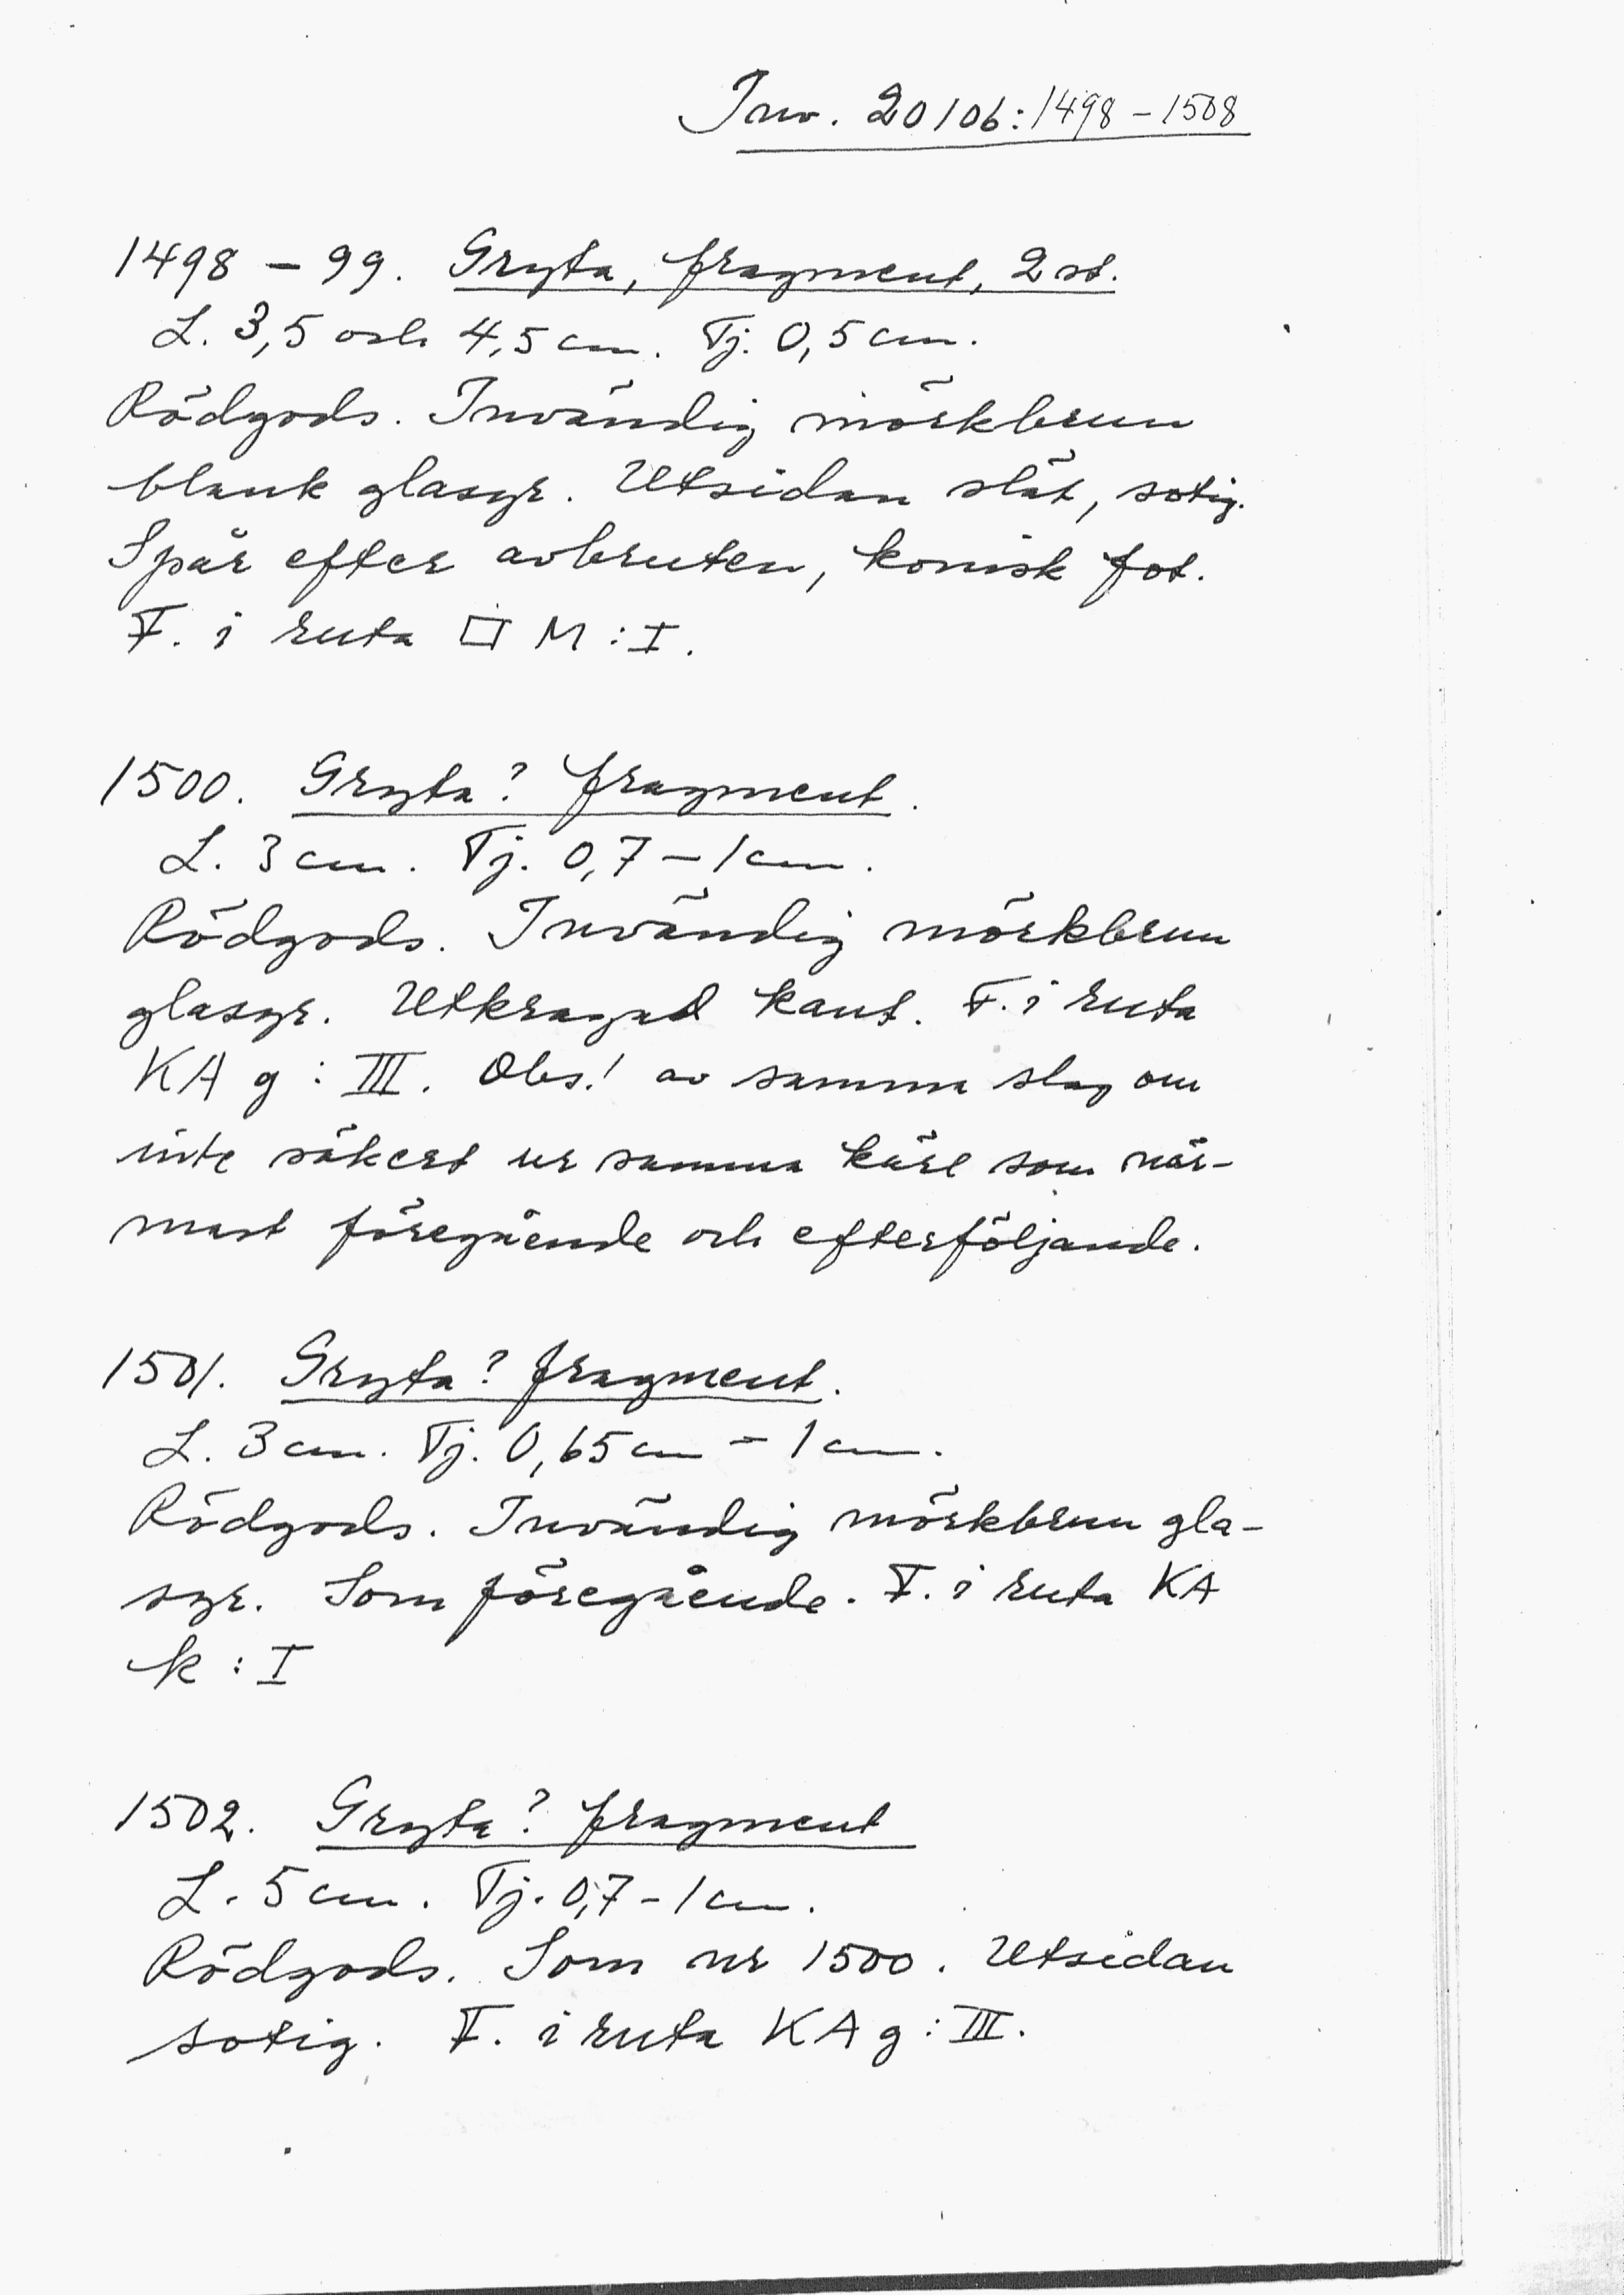 Inv. 20106:1498-1508
1498-99. Gryta, fragment, 2 st.
L. 3,5 och 4,5 cm. Tj. 0,5 cm.
Rödgods. Invändig mörkbrun
blank glasyr. Utsidan slät, sotig.
Spår efter avbruten, konisk fot.
F. i ruta □ M:I.
1500. Gryta? fragment.
L. 3 cm. Tj. 0,7-1 cm.
Rödgods. Invändig mörkbrun
glasyr. Utkragad kant. F. i ruta
KA g:III. Obs! av samma slag om
inte säkert ur samma kärl som när-
mast föregående och efterföljande.
1501. Gryta? fragment.
L. 3 cm. Tj. 0,65 cm - 1 cm.
Rödgods. Invändig mörkbrun gla-
syr. Som föregående. F. i ruta KA
k:I
1502. Gryta? fragment
L. 5 cm. Tj. 0,7-1 cm.
Rödgods. Som nr 1500. Utsidan
sotig. F. i ruta KA g:III.